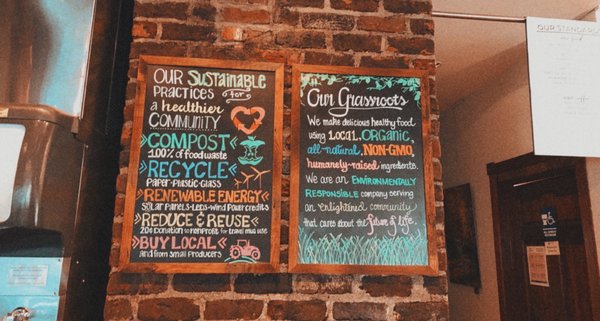 OUR SUSTAINABLE
PRACTICES for
a healthier
COMMUNITY
COMPOST
100% of food waste
RECYCLE
Paper-Plastic-Glass
RENEWABLE ENERGY
Solar Panels-Leds-wind Power credits
REDUCE & REUSE
20¢ Donation to nonprofit for travel mug use
BUY LOCAL
and from Small Producers
Our Grassroots
We make delicious healthy food
using LOCAL, ORGANIC,
all-natural, NON-GMO,
humanely-raised ingredients.
We are an ENVIRONMENTALLY
RESPONSIBLE company serving
an Enlightened community
that cares about the future of life.
OUR STANDARDS